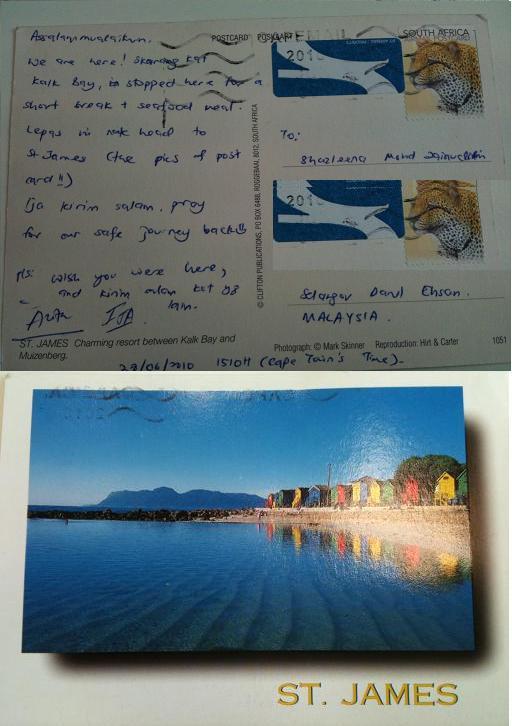 Assalammualaikum.
We are here! Skarang kat
Kalk Bay, is stopped here for a
short break + seafood meal.
Lepas ni nak head to
St James (the pics of post
card!!)
Ija kirim salam. pray
for our safe journey back!!
Ps: wish you were here,
and kirim salam kat
lain.
IJA
ST. JAMES Charming resort between Kalk Bay and
Muizenberg.
23/06/2010 1510H (Cape Town's Time).
POSTCARD
© CLIFTON PUBLICATIONS, PO BOX 6488, ROGGEBAAI, 8012, SOUTH AFRICA
2010
SOUTH AFRICA
To:
Shazleena Mohd
2010
Selangor Darul Ehsan.
MALAYSIA.
Photograph: © Mark Skinner Reproduction: Hirt & Carter 1051
ST. JAMES